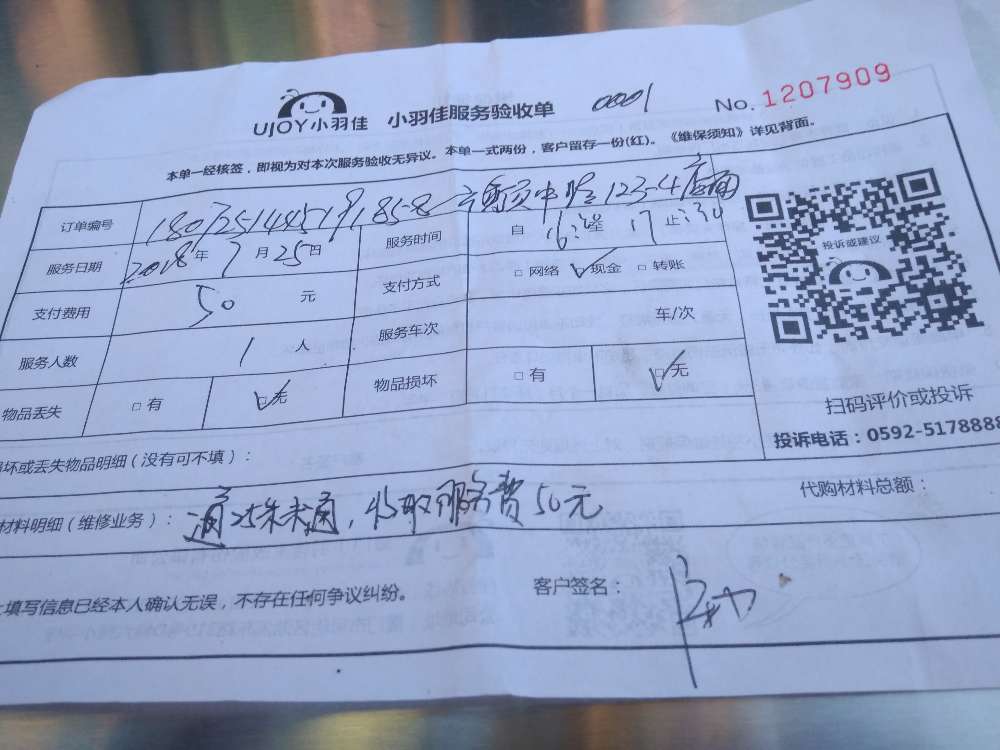 UJOY小羽佳 小羽佳服务验收单 0001 No. 1207909
本单一经核签，即视为对本次服务验收无异议。本单一式两份，客户留存一份(红)。《维保须知》详见背面。
订单编号 123-4店面
服务日期 2018年7月25日 服务时间 自16:30至17:30止
支付费用 50 元 支付方式 □网络 ☑现金 □转账
服务人数 1 人 服务车次 车/次
物品丢失 □有 ☑无 物品损坏 □有 ☑无
投诉或建议
扫码评价或投诉
投诉电话：0592-5178888
坏或丢失物品明细（没有可不填）：
材料明细（维修业务）： 未通，收取服务费50元 代购材料总额：
填写信息已经本人确认无误，不存在任何争议纠纷。 客户签名：